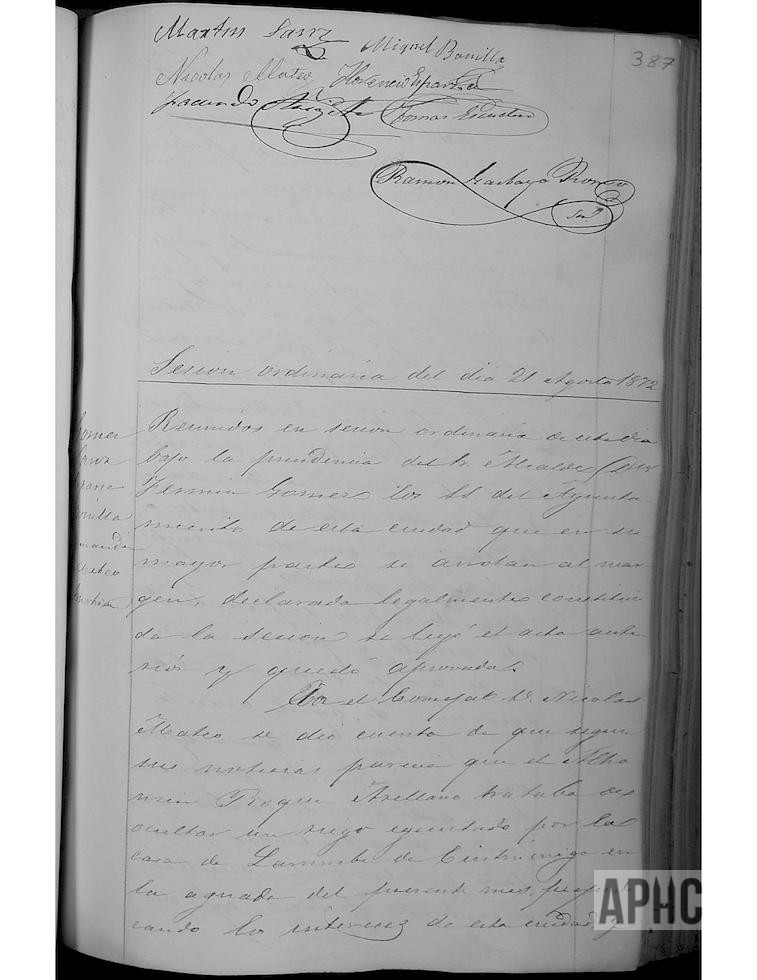 387
Martin Sanz
Miguel Bonilla
Nicolas Mateo Florencio Esparza
Facundo
Tomas
Ramon Garbayo Romeo
Srio
Sesion ordinaria del dia 21 Agosto 1872
Reunidos en sesion ordinaria de este dia
bajo la presidencia del Sr. Alcalde Dn
Fermin Gomez los SS del Ayunta
miento de esta ciudad que en su
mayor parte se anotan al mar
gen, declarada legalmente constitui
da la sesion se leyó el acta ante
rior y quedó aprobada.
Por el Concejal D. Nicolas
Mateo se dio cuenta de que segun
sus noticias parecia que el
Roque Arellano trataba de
ocultar un riego ejecutado por la
casa de de Cintruénigo en
la aguada del presente mes, perjudi
cando los intereses de esta ciudad, y
APHC